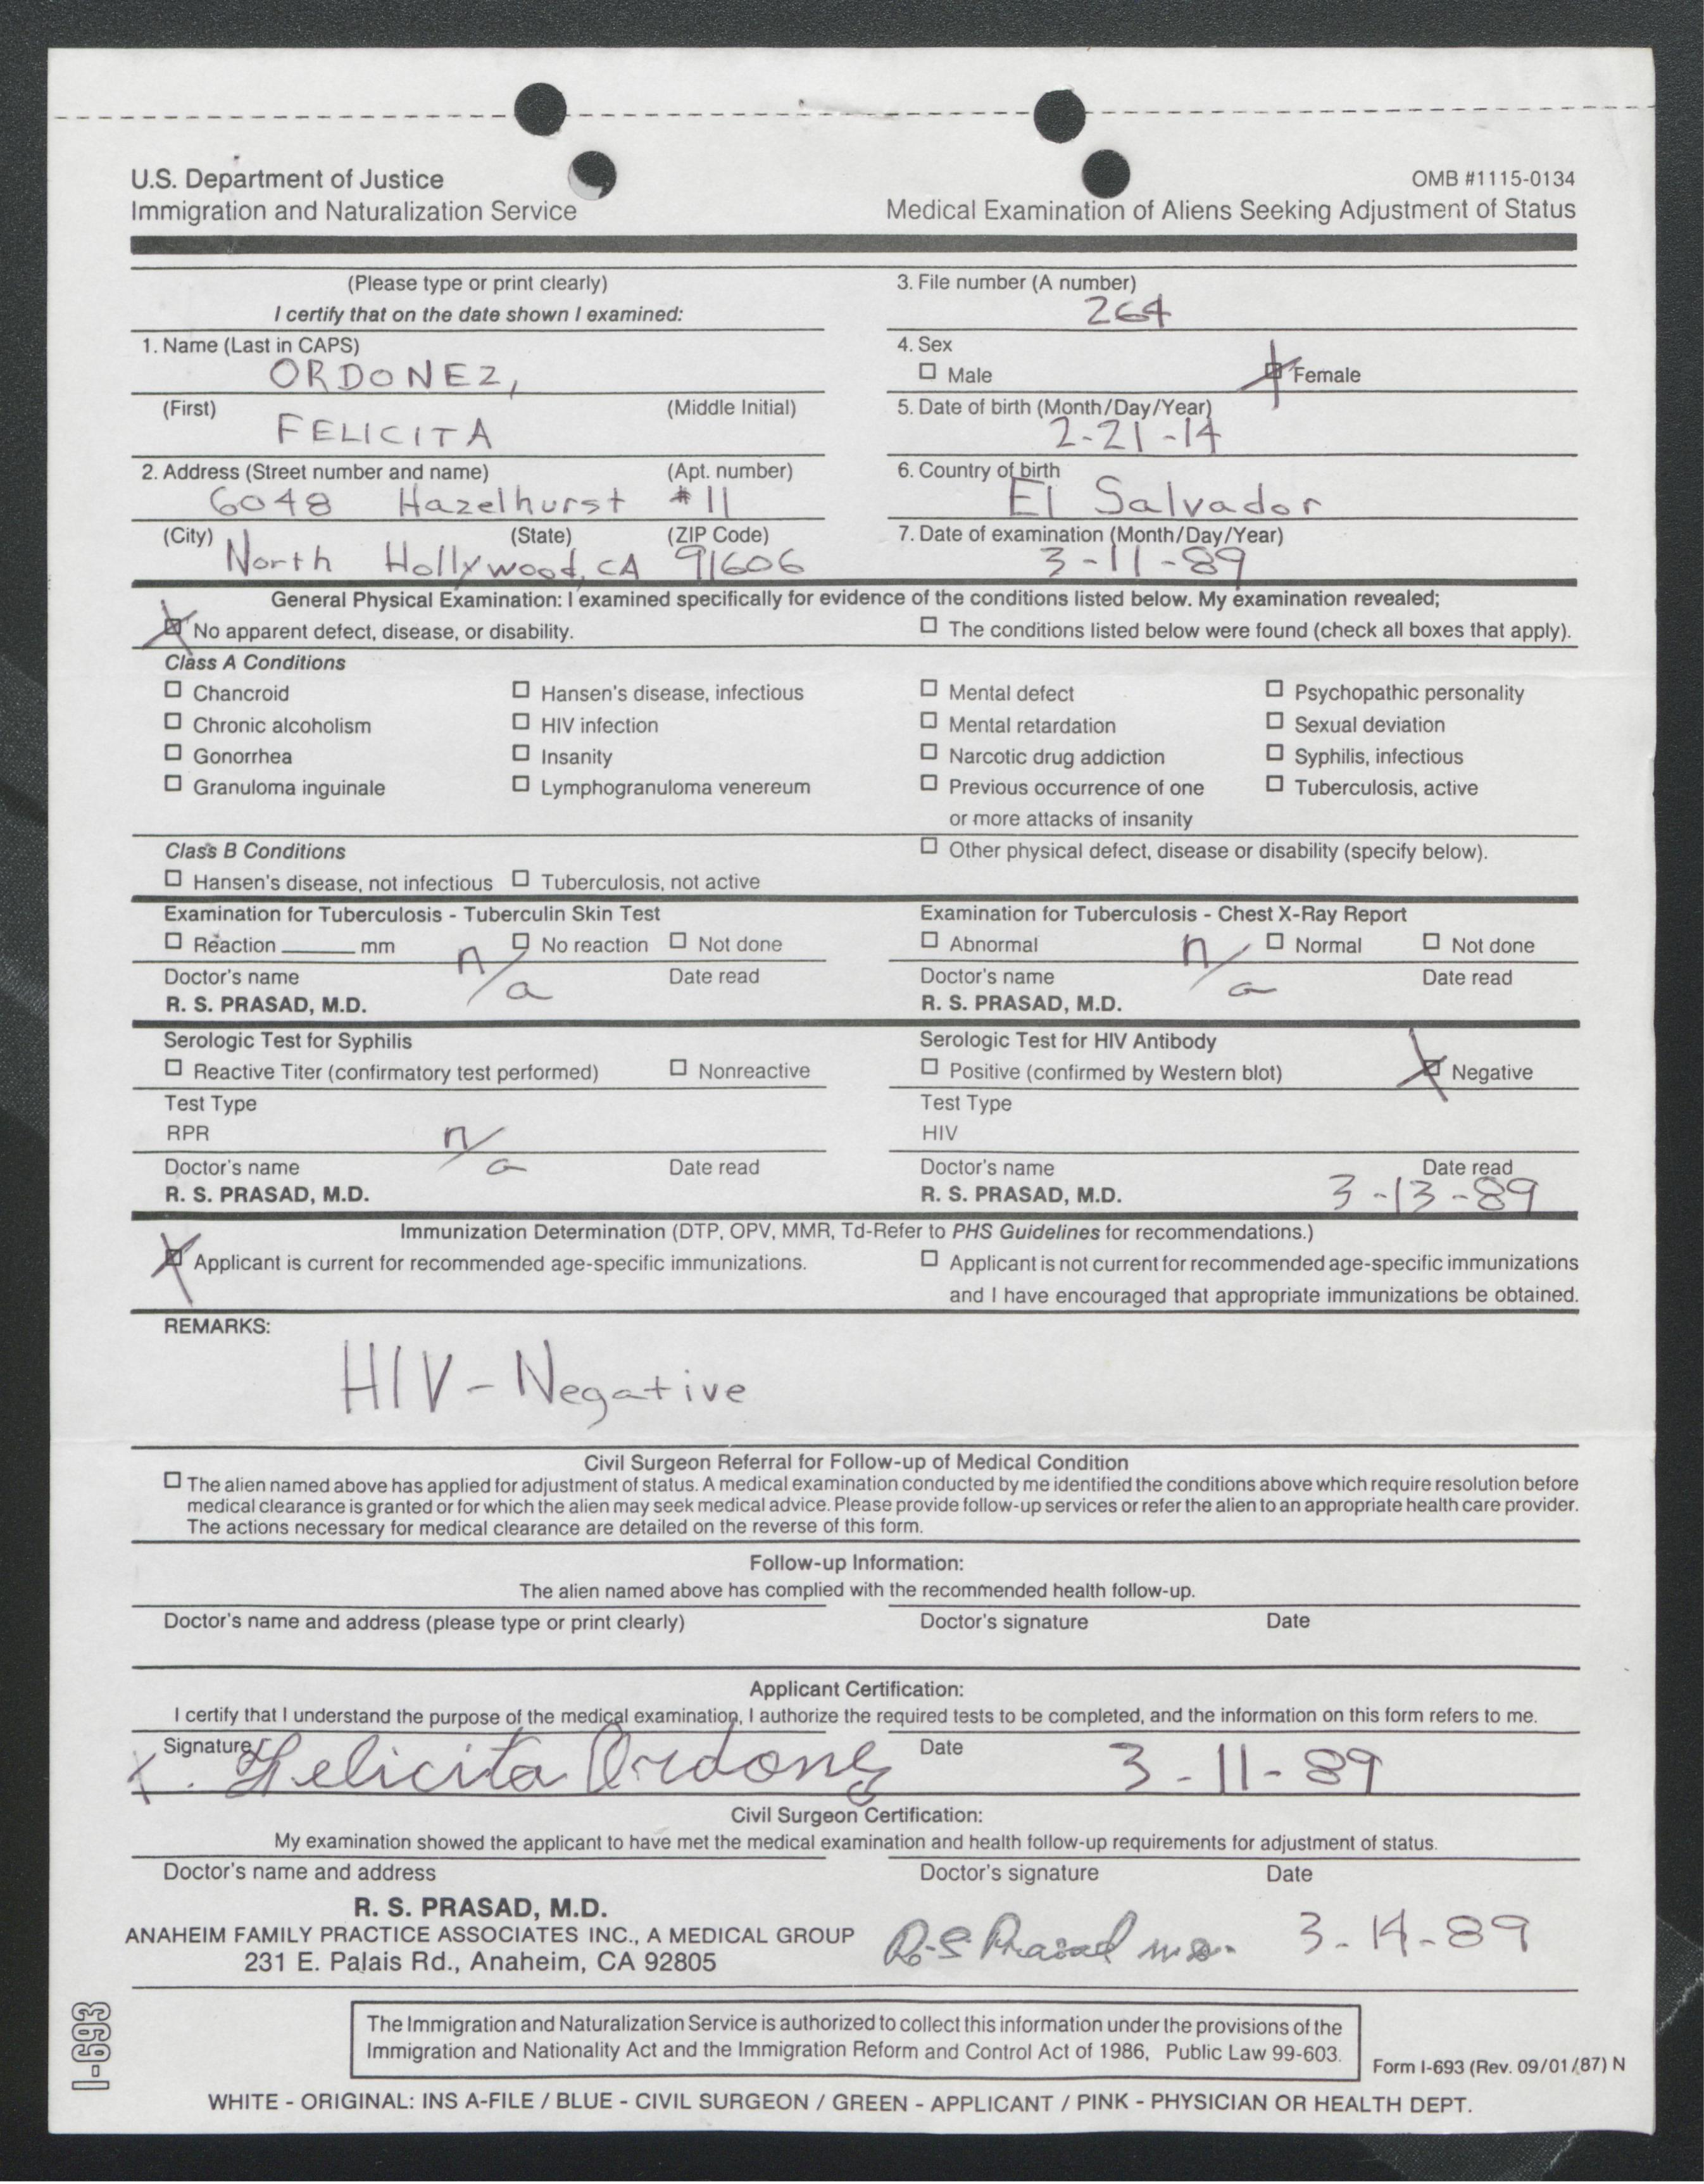 U.S. Department of Justice
Immigration and Naturalization Service
OMB #1115-0134
Medical Examination of Aliens Seeking Adjustment of Status
(Please type or print clearly)
I certify that on the date shown I examined:
3. File number (A number)
264
1. Name (Last in CAPS)
ORDONEZ,
4. Sex
☐ Male ☒ Female
(First) (Middle Initial)
FELICITA
5. Date of birth (Month/Day/Year)
2-21-14
2. Address (Street number and name) (Apt. number)
6048 Hazelhurst #11
6. Country of birth
El Salvador
(City) (State) (ZIP Code)
North Hollywood, CA 91606
7. Date of examination (Month/Day/Year)
3-11-89
General Physical Examination: I examined specifically for evidence of the conditions listed below. My examination revealed;
☒ No apparent defect, disease, or disability. ☐ The conditions listed below were found (check all boxes that apply).
Class A Conditions
☐ Chancroid ☐ Hansen's disease, infectious ☐ Mental defect ☐ Psychopathic personality
☐ Chronic alcoholism ☐ HIV infection ☐ Mental retardation ☐ Sexual deviation
☐ Gonorrhea ☐ Insanity ☐ Narcotic drug addiction ☐ Syphilis, infectious
☐ Granuloma inguinale ☐ Lymphogranuloma venereum ☐ Previous occurrence of one ☐ Tuberculosis, active
or more attacks of insanity
Class B Conditions ☐ Other physical defect, disease or disability (specify below).
☐ Hansen's disease, not infectious ☐ Tuberculosis, not active
Examination for Tuberculosis - Tuberculin Skin Test
☐ Reaction ______ mm ☐ No reaction ☐ Not done
n/a
Doctor's name Date read
R. S. PRASAD, M.D.
Examination for Tuberculosis - Chest X-Ray Report
☐ Abnormal ☐ Normal ☐ Not done
n/a
Doctor's name Date read
R. S. PRASAD, M.D.
Serologic Test for Syphilis
☐ Reactive Titer (confirmatory test performed) ☐ Nonreactive
Test Type
RPR
n/a
Doctor's name Date read
R. S. PRASAD, M.D.
Serologic Test for HIV Antibody
☐ Positive (confirmed by Western blot) ☒ Negative
Test Type
HIV
Doctor's name Date read
R. S. PRASAD, M.D. 3-13-89
Immunization Determination (DTP, OPV, MMR, Td-Refer to PHS Guidelines for recommendations.)
☒ Applicant is current for recommended age-specific immunizations. ☐ Applicant is not current for recommended age-specific immunizations
and I have encouraged that appropriate immunizations be obtained.
REMARKS:
HIV - Negative
Civil Surgeon Referral for Follow-up of Medical Condition
☐ The alien named above has applied for adjustment of status. A medical examination conducted by me identified the conditions above which require resolution before
medical clearance is granted or for which the alien may seek medical advice. Please provide follow-up services or refer the alien to an appropriate health care provider.
The actions necessary for medical clearance are detailed on the reverse of this form.
Follow-up Information:
The alien named above has complied with the recommended health follow-up.
Doctor's name and address (please type or print clearly) Doctor's signature Date
Applicant Certification:
I certify that I understand the purpose of the medical examination, I authorize the required tests to be completed, and the information on this form refers to me.
Signature Date
x. Felicita Ordonez 3-11-89
Civil Surgeon Certification:
My examination showed the applicant to have met the medical examination and health follow-up requirements for adjustment of status.
Doctor's name and address Doctor's signature Date
R. S. PRASAD, M.D.
ANAHEIM FAMILY PRACTICE ASSOCIATES INC., A MEDICAL GROUP
231 E. Palais Rd., Anaheim, CA 92805
R.S. Prasad m.d. 3-14-89
I-693
The Immigration and Naturalization Service is authorized to collect this information under the provisions of the
Immigration and Nationality Act and the Immigration Reform and Control Act of 1986, Public Law 99-603.
Form I-693 (Rev. 09/01/87) N
WHITE - ORIGINAL: INS A-FILE / BLUE - CIVIL SURGEON / GREEN - APPLICANT / PINK - PHYSICIAN OR HEALTH DEPT.